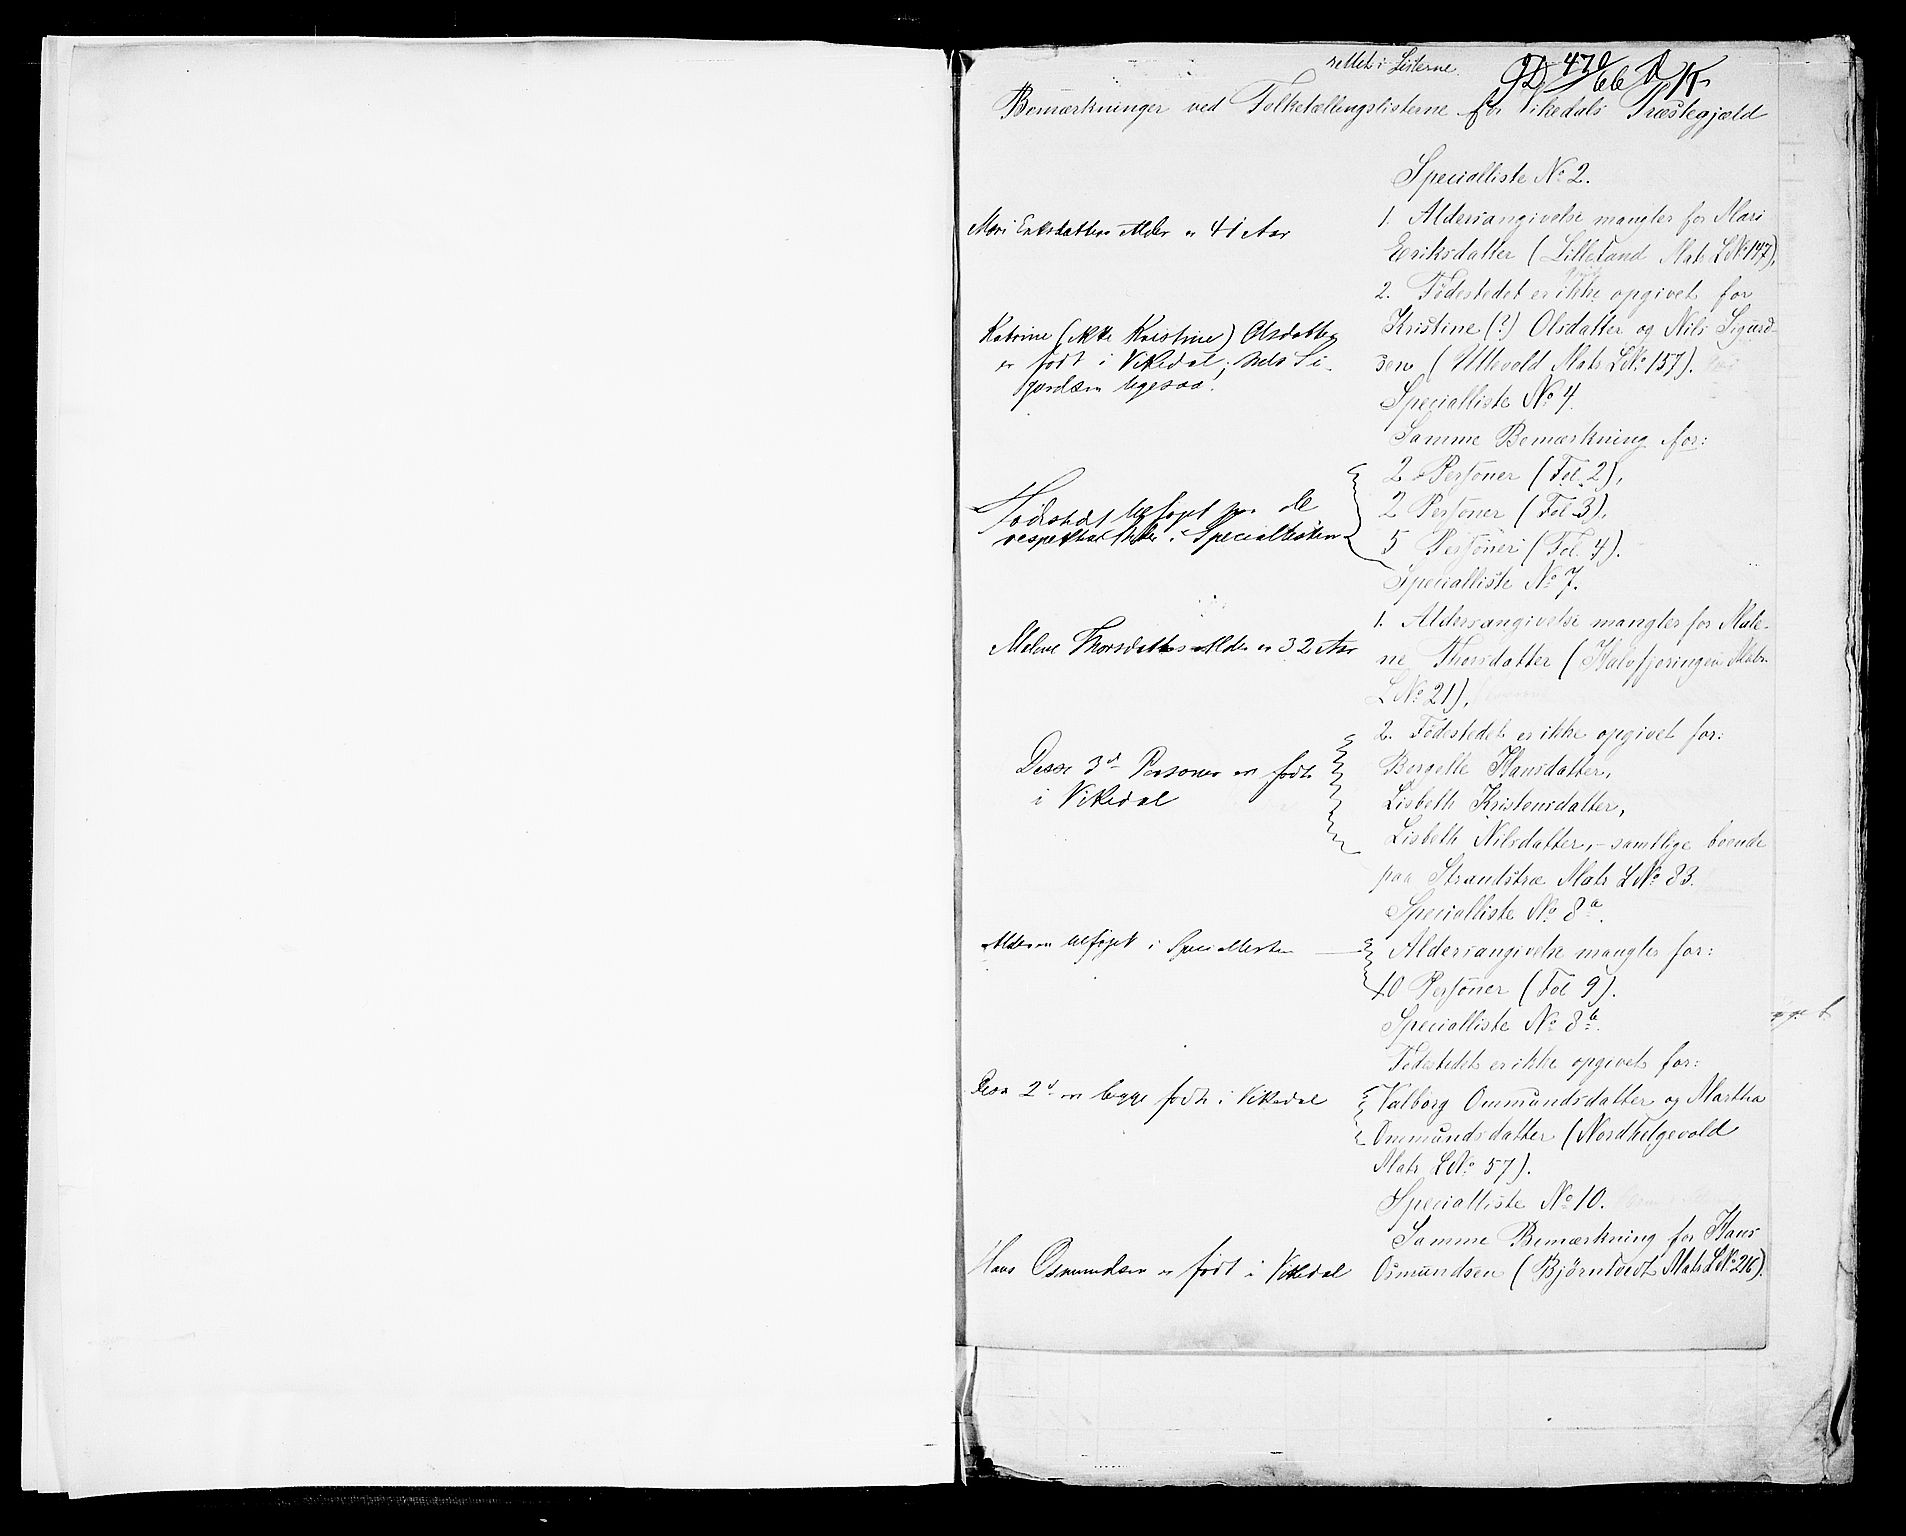 rettet i Listerne.
Bemærkninger ved Folketællingslisterne for Vikedals Præstegjæld
Specialliste No 2.
1. Aldersangivelse mangler for Mari
Eriksdatter (Lilleland Matr. L No 147),
2. Fødestedet er ikke opgivet for
Kristine (?) Olsdatter og Nils Sigurd-
sen (Utlevold Matr L No 157).
Mari Eriksdatters Alder er 41 Aar
Katrine (ikke Kristine) Olsdatter
er født i Vikedal; Nils Si-
gurdsen ligesaa.
Specialliste No 4.
Samme Bemærkning for:
2 Personer (Fol. 2),
2 Personer (Fol. 3),
5 Personer (Fol. 4).
Fødested tilføjet paa de
respektive i Speciallisten
Specialliste No 7.
1. Aldersangivelse mangler for Male-
ne Thorsdatter (Kalvfjøringen Matr.
L No 21),
2. Fødestedet er ikke opgivet for:
Borgelle Hansdatter,
Lisbeth Kristensdatter,
Lisbeth Nilsdatter, - samtlige boende
paa Strandstræ Matr L No 83.
Malene Thorsdatters Alder er 32 Aar
Disse 3de Personer er født
i Vikedal
Specialliste No 8a.
Aldersangivelse mangler for:
40 Personer (Fol 9).
Alderen tilføjet i Speciallisten
Specialliste No 8b.
Fødestedet er ikke opgivet for:
Valborg Ommundsdatter og Martha
Ommundsdatter (Nordhelgevold
Matr L No 57).
Disse 2de er begge født i Vikedal
Specialliste No 10.
Samme Bemærkning for Hans
Osmundsen (Bjørntvedt Matr L No 216).
Hans Osmundsen er født i Vikedal